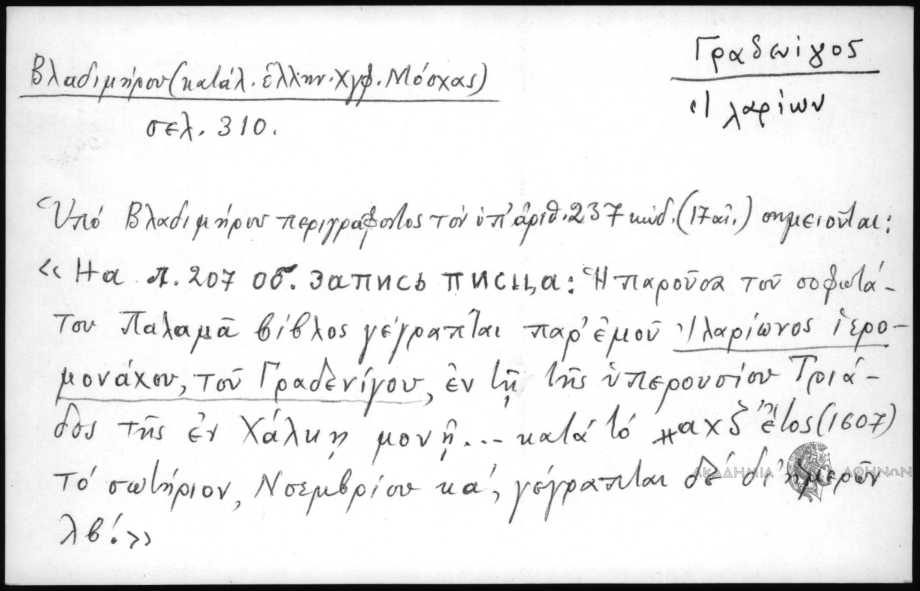 Γραδενίγος
Ἱλαρίων
Βλαδιμήρου (κατάλ. ἑλλην. χγφ. Μόσχας)
σελ. 310.
Ὑπό Βλαδιμήρου περιγράφοντος τόν ὑπ' ἀριθ. 237 κώδ. (17 αἰ.) σημειοῦται:
«На л. 207 об. запись писца: Ἡ παροῦσα τοῦ σοφωτά-
του Παλαμᾶ βίβλος γέγραπται παρ' ἐμοῦ Ἱλαρίωνος ἱερο-
μονάχου, τοῦ Γραδενίγου, ἐν τῇ τῆς ὑπερουσίου Τριά-
δος τῆς ἐν Χάλκῃ μονῇ... κατά τό ͵αχζ ἔτος (1607)
τό σωτήριον, Νοεμβρίου κα', γέγραπται δέ δι' ἡμερῶν
λβ'.»
ΑΚΑΔΗΜΙΑ ΑΘΗΝΩΝ